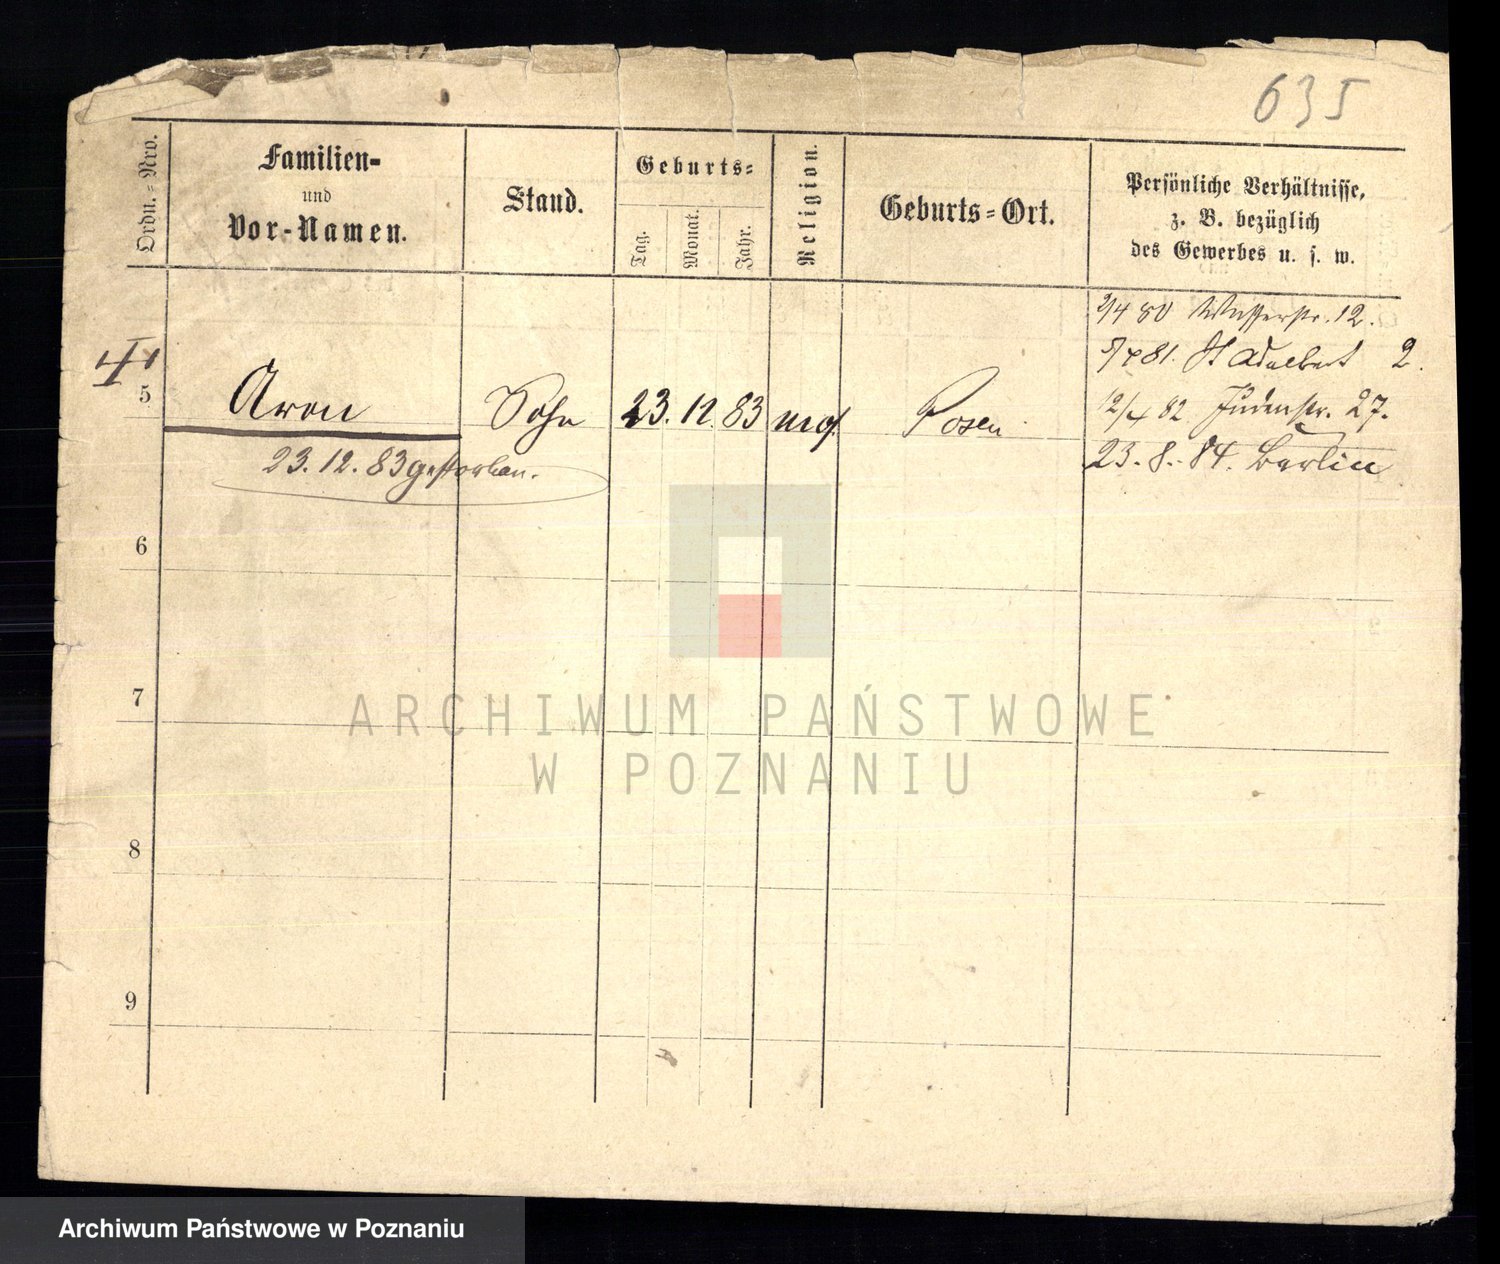 635
Ordn.-Nro.
Familien-
und
Vor-Namen.
Stand.
Geburts-
Tag.
Monat.
Jahr.
Religion.
Geburts-Ort.
Persönliche Verhältnisse,
z. B. bezüglich
des Gewerbes u. s. w.
2/4 80 Wasserstr. 12.
5/4 81. St Adalbert 2.
5 Aron Sohn 23. 12. 83 mos. Posen
12/4 82 Judenstr. 27.
23. 12. 83 gestorben.
23. 8. 84. Berlin
6
7
ARCHIWUM PAŃSTWOWE
W POZNANIU
8
9
Archiwum Państwowe w Poznaniu